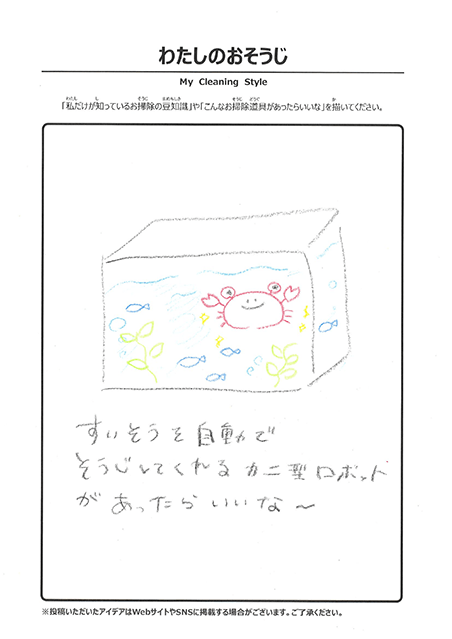 わたしのおそうじ
My Cleaning Style
「私だけが知っているお掃除の豆知識」や「こんなお掃除道具があったらいいな」を描いてください。
すいそうを自動で
そうじしてくれるカニ型ロボット
があったらいいな〜
※投稿いただいたアイデアはWebサイトやSNSに掲載する場合がございます。ご了承ください。